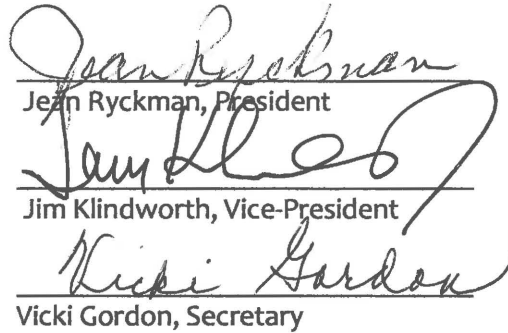 Jean Ryckman
Jean Ryckman, President
Jim Klindworth, Vice-President
Vicki Gordon
Vicki Gordon, Secretary